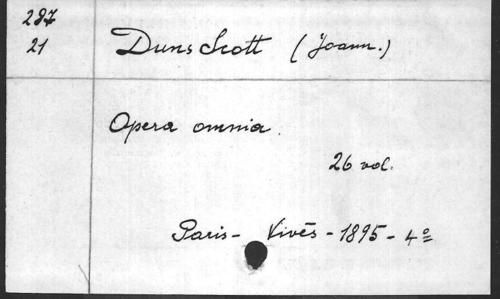 287
21
Duns Scott (Joann.)
Opera omnia.
26 vol.
Paris - Vivès - 1895 - 4º